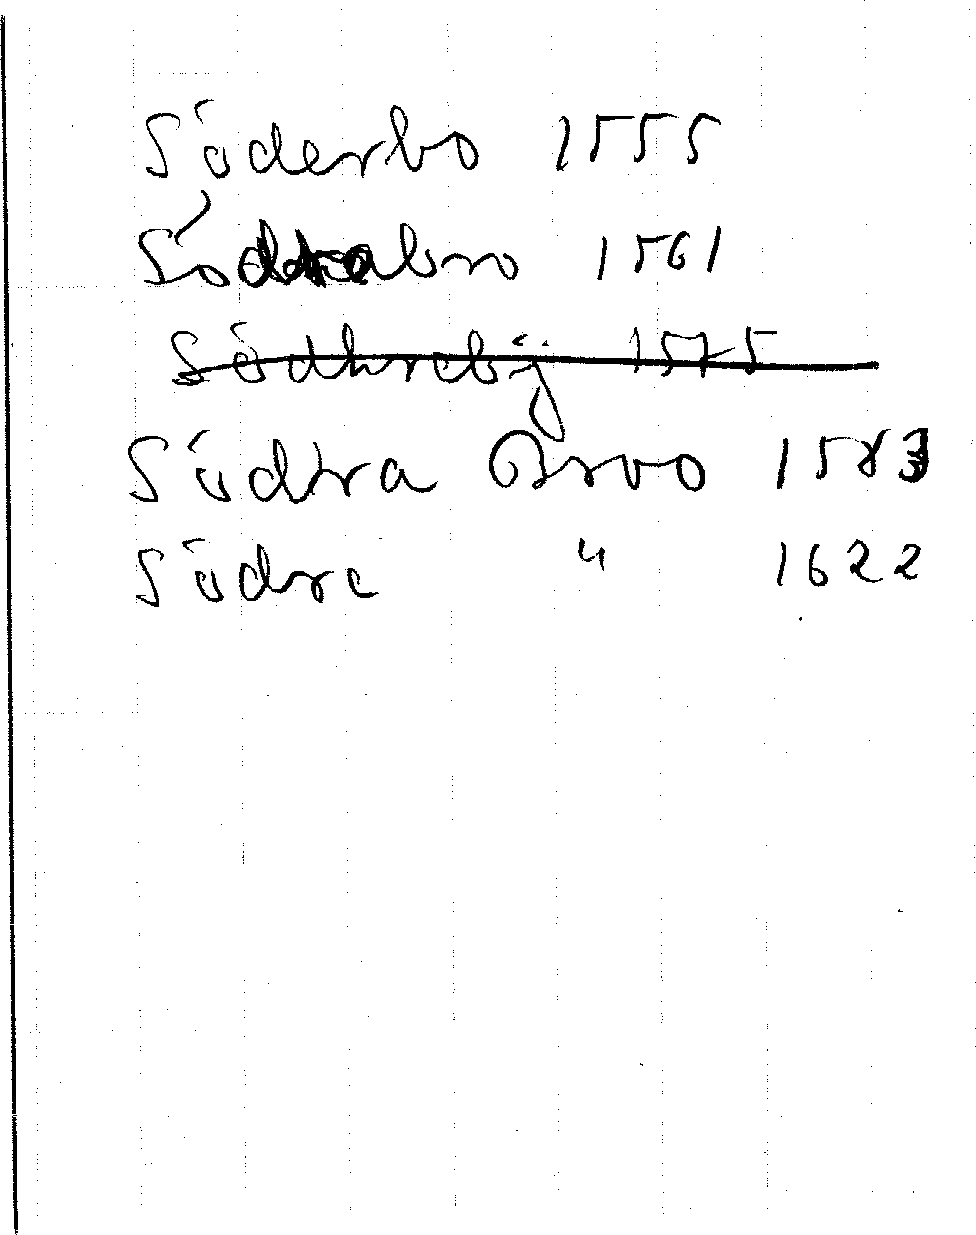 Söderbo 1555
Södrabro 1561
Södhrebÿ 1575
Södra Broo 1583
Södre " 1622